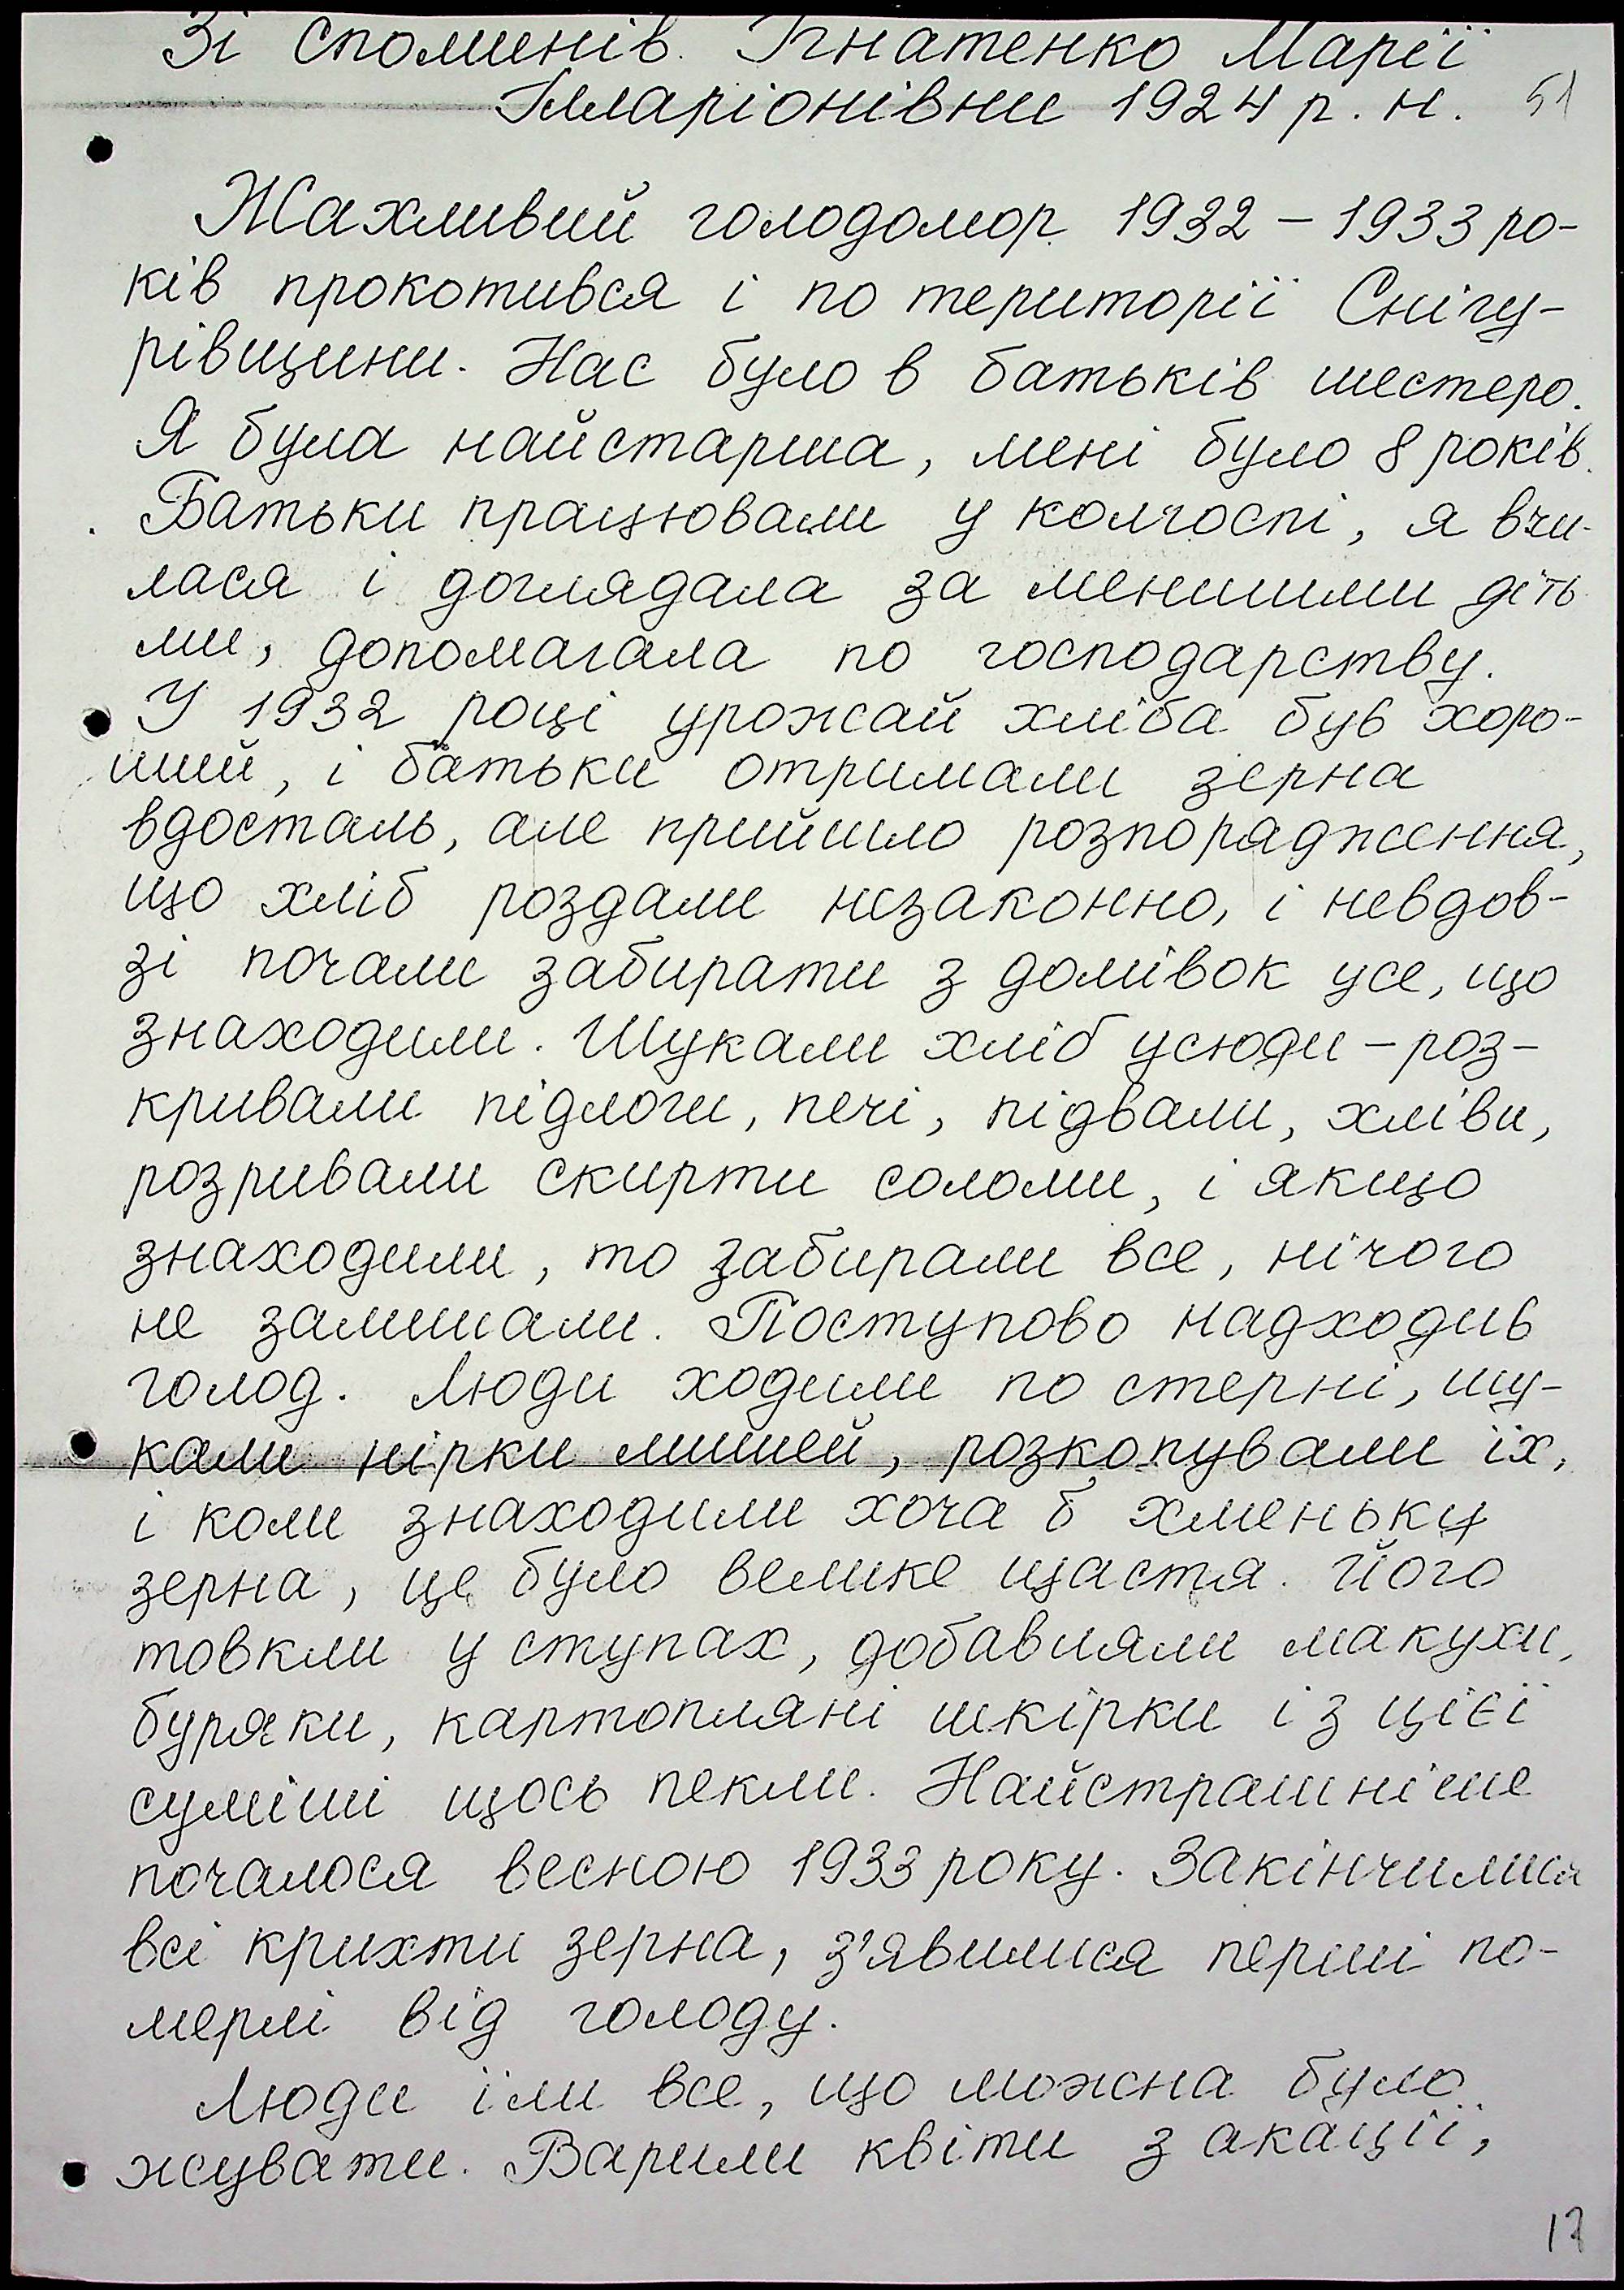 Зі споминів Ігнатенко Марії
Ілларіонівни 1924 р. н. 51
Жахливий голодомор 1932 – 1933 ро-
ків прокотився і по території Снігу-
рівщини. Нас було в батьків шестеро.
Я була найстарша, мені було 8 років.
Батьки працювали у колгоспі, я вчи-
лася і доглядала за меншими діть
ми, допомагала по господарству.
У 1932 році урожай хліба був хоро-
ший, і батьки отримали зерна
вдосталь, але прийшло розпорядження,
що хліб роздали незаконно, і невдов-
зі почали забирати з домівок усе, що
знаходили. Шукали хліб усюди – роз-
кривали підлоги, печі, підвали, хліви,
розривали скирти соломи, і якщо
знаходили, то забирали все, нічого
не залишали. Поступово надходив
голод. Люди ходили по стерні, шу-
кали нірки мишей, розкопували їх,
і коли знаходили хоча б хменьку
зерна, це було велике щастя. Його
товкли у ступах, добавляли макухи,
буряки, картопляні шкірки і з цієї
суміші щось пекли. Найстрашніше
почалося весною 1933 року. Закінчилися
всі крихти зерна, з'явилися перші по-
мерлі від голоду.
Люди їли все, що можна було
жувати. Варили квіти з акації,
17